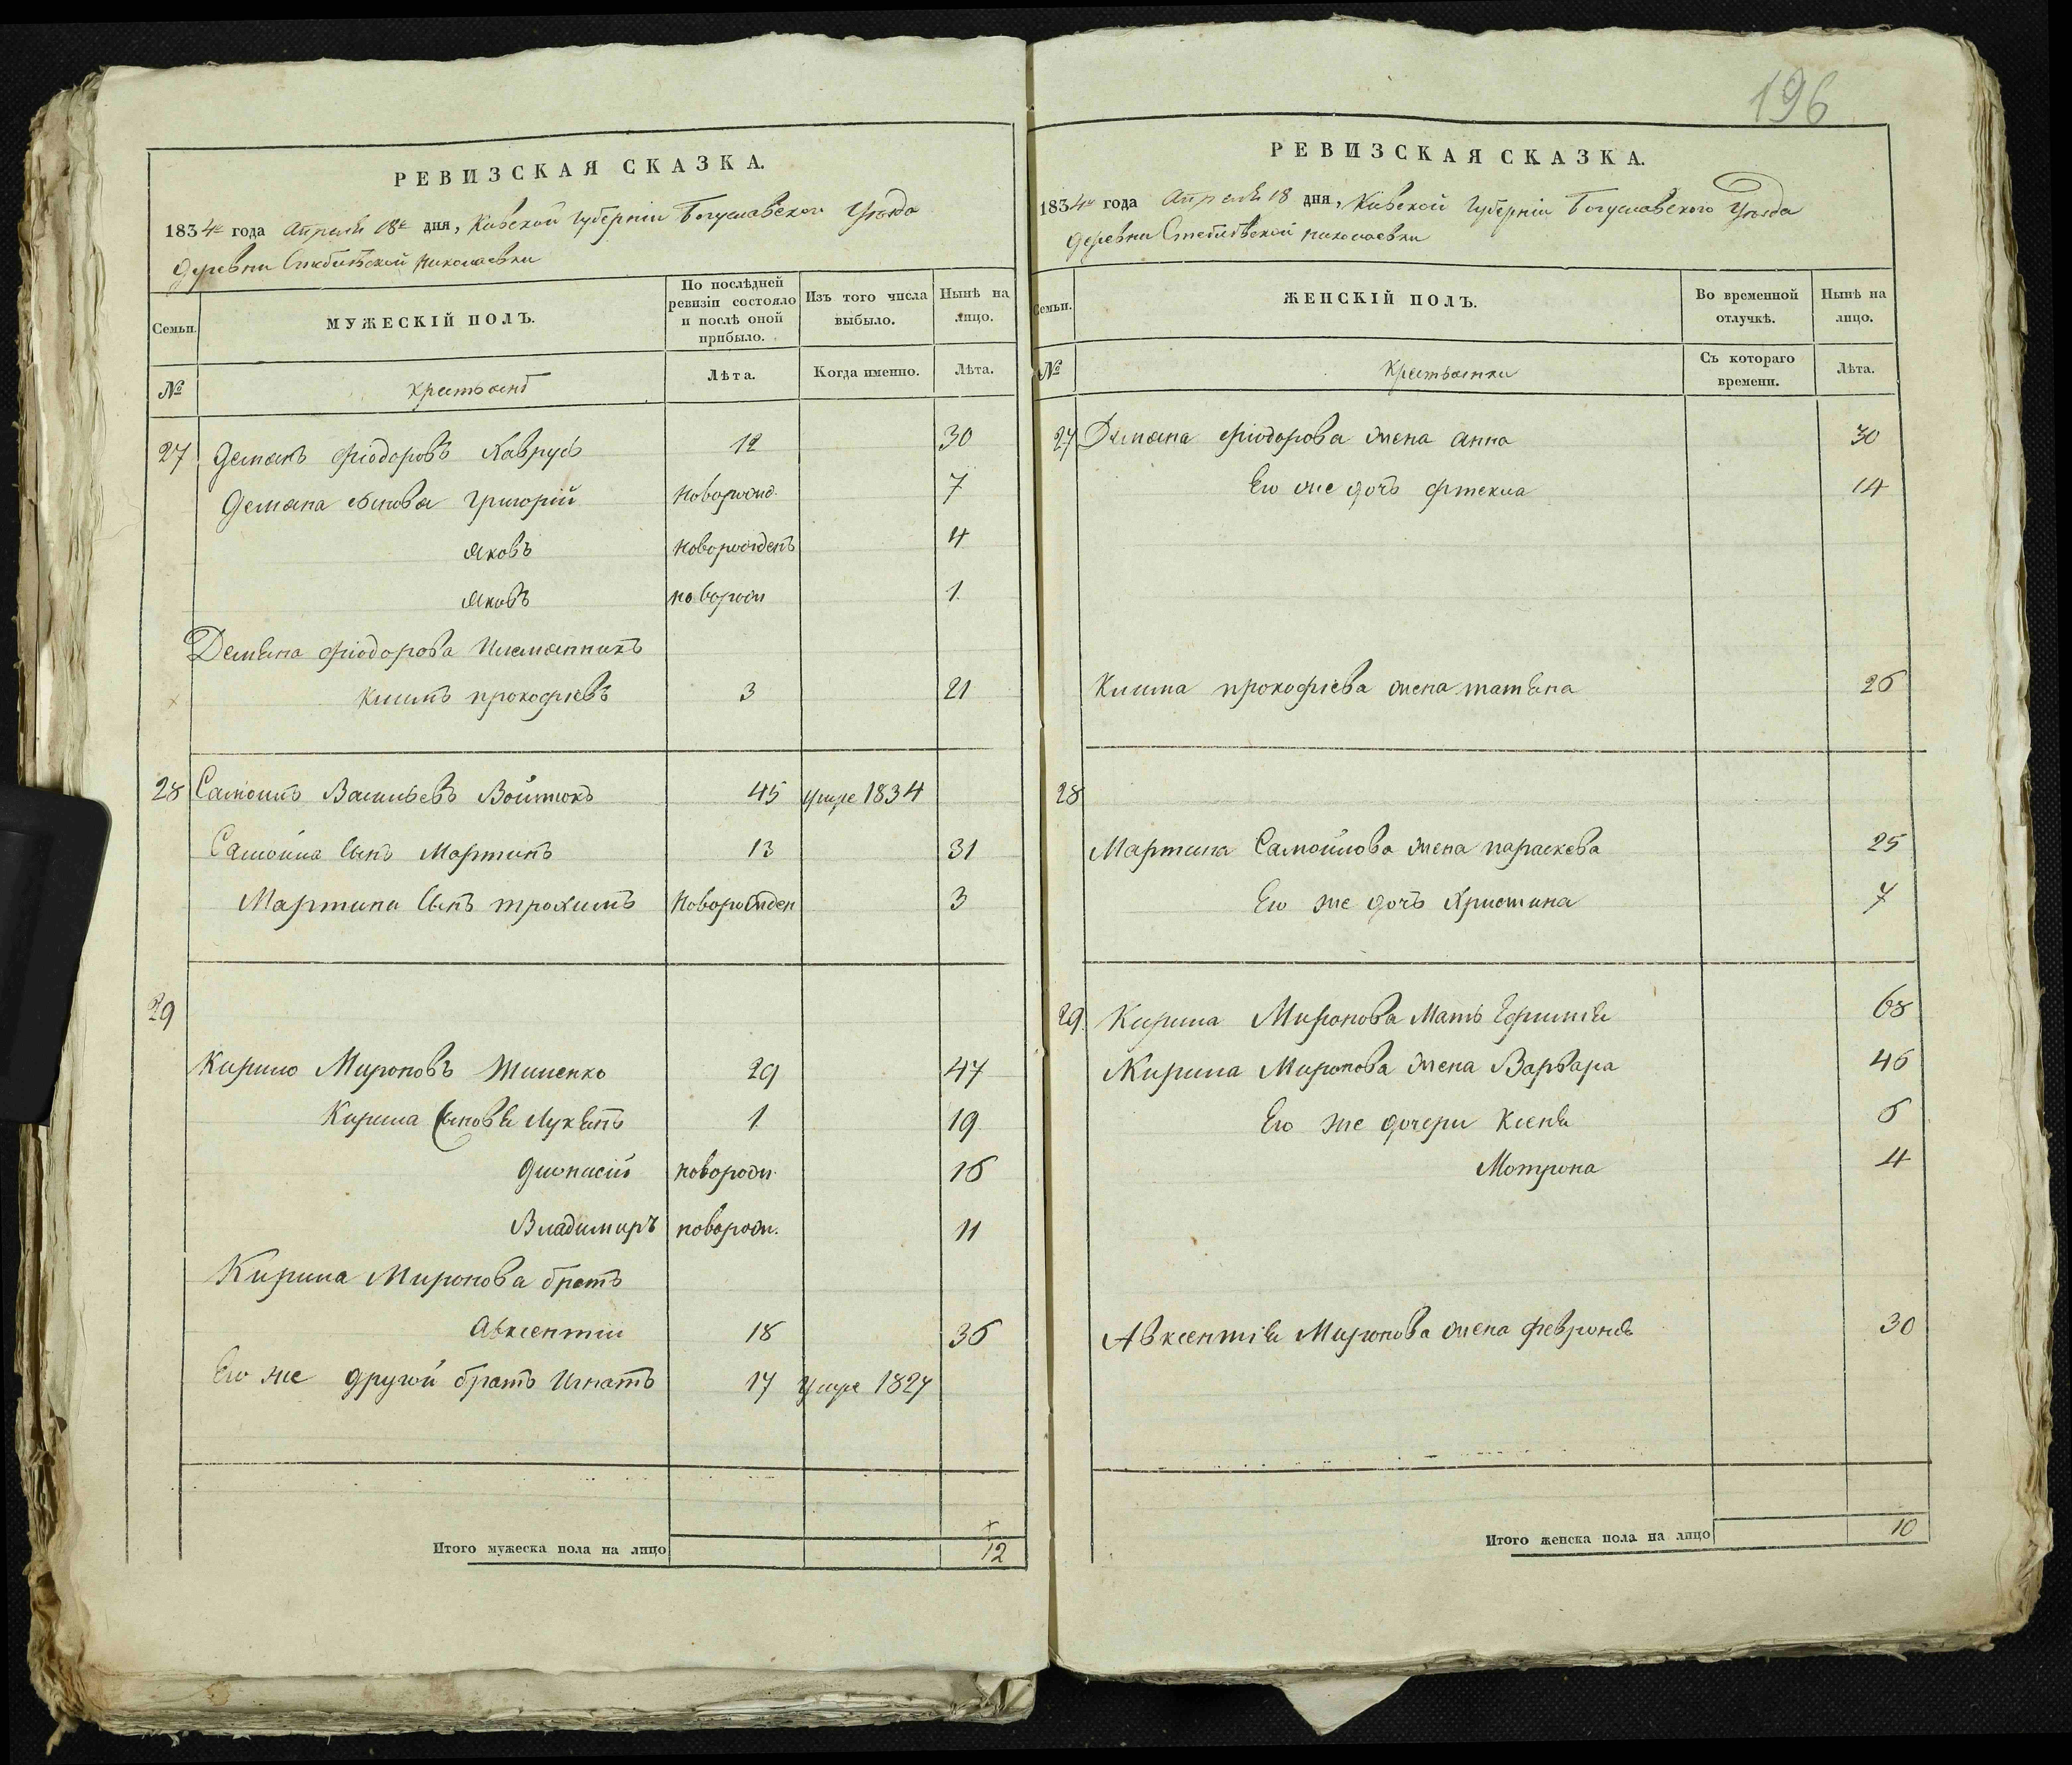 РЕВИЗСКАЯ СКАЗКА.
1834го года Апреля 18го дня, Киевской Губерніи Богуславского Уезда
деревни Стеблѣвской Николаевки
Семьи.
МУЖЕСКІЙ ПОЛЪ.
По послѣдней ревизіи состояло и послѣ оной прибыло.
Изъ того числа выбыло.
Нынѣ на лицо.
№
Крестьянъ
Лѣта.
Когда именно.
Лѣта.
27 Демянъ Фіодоровъ Каврусь 12 30
Демяна Синовя Григорій новорожд. 7
Яковъ новорожденъ 4
Яковъ деворож 1
Демяна Фіодорова Племянникъ
Климъ прокофіевъ 3 21
28 Самоилъ Васильевъ Войтюкъ 45 умре 1834
Самойла Сынъ Мартинъ 13 31
Мартина Сынъ трохимъ новорожден 3
29
Кирило Мироновъ Тименко 29 47
Кирила Сыновя Лукянъ 1 19
Дионисій новорож 16
Владимиръ новорож. 11
Кирила Миронова братъ
Авксентии 18 36
Его же другой братъ Игнатъ 17 умре 1827
Итого мужеска пола на лицо 12
196
РЕВИЗСКАЯ СКАЗКА.
1834го года Апреля 18 дня, Киевской Губерніи Богуславского Уезда
деревни Стеблѣвской Николаевки
Семьи.
ЖЕНСКІЙ ПОЛЪ.
Во временной отлучкѣ.
Нынѣ на лицо.
№
Крестьянки
Съ котораго времени.
Лѣта.
27 Демяна Фіодорова жена Анна 30
Его же дочь Фтекла 14
Клима прокофіева жена татяна 26
28
Мартина Самойлова жена параскева 25
Его же дочь Христина 7
29. Кирила Миронова Мать Ефимія 68
Кирила Миронова жена Варвара 46
Его же дочери Ксеня 6
Мотрона 4
Авксентія Миронова жена Февроня 30
Итого женска пола на лицо 10